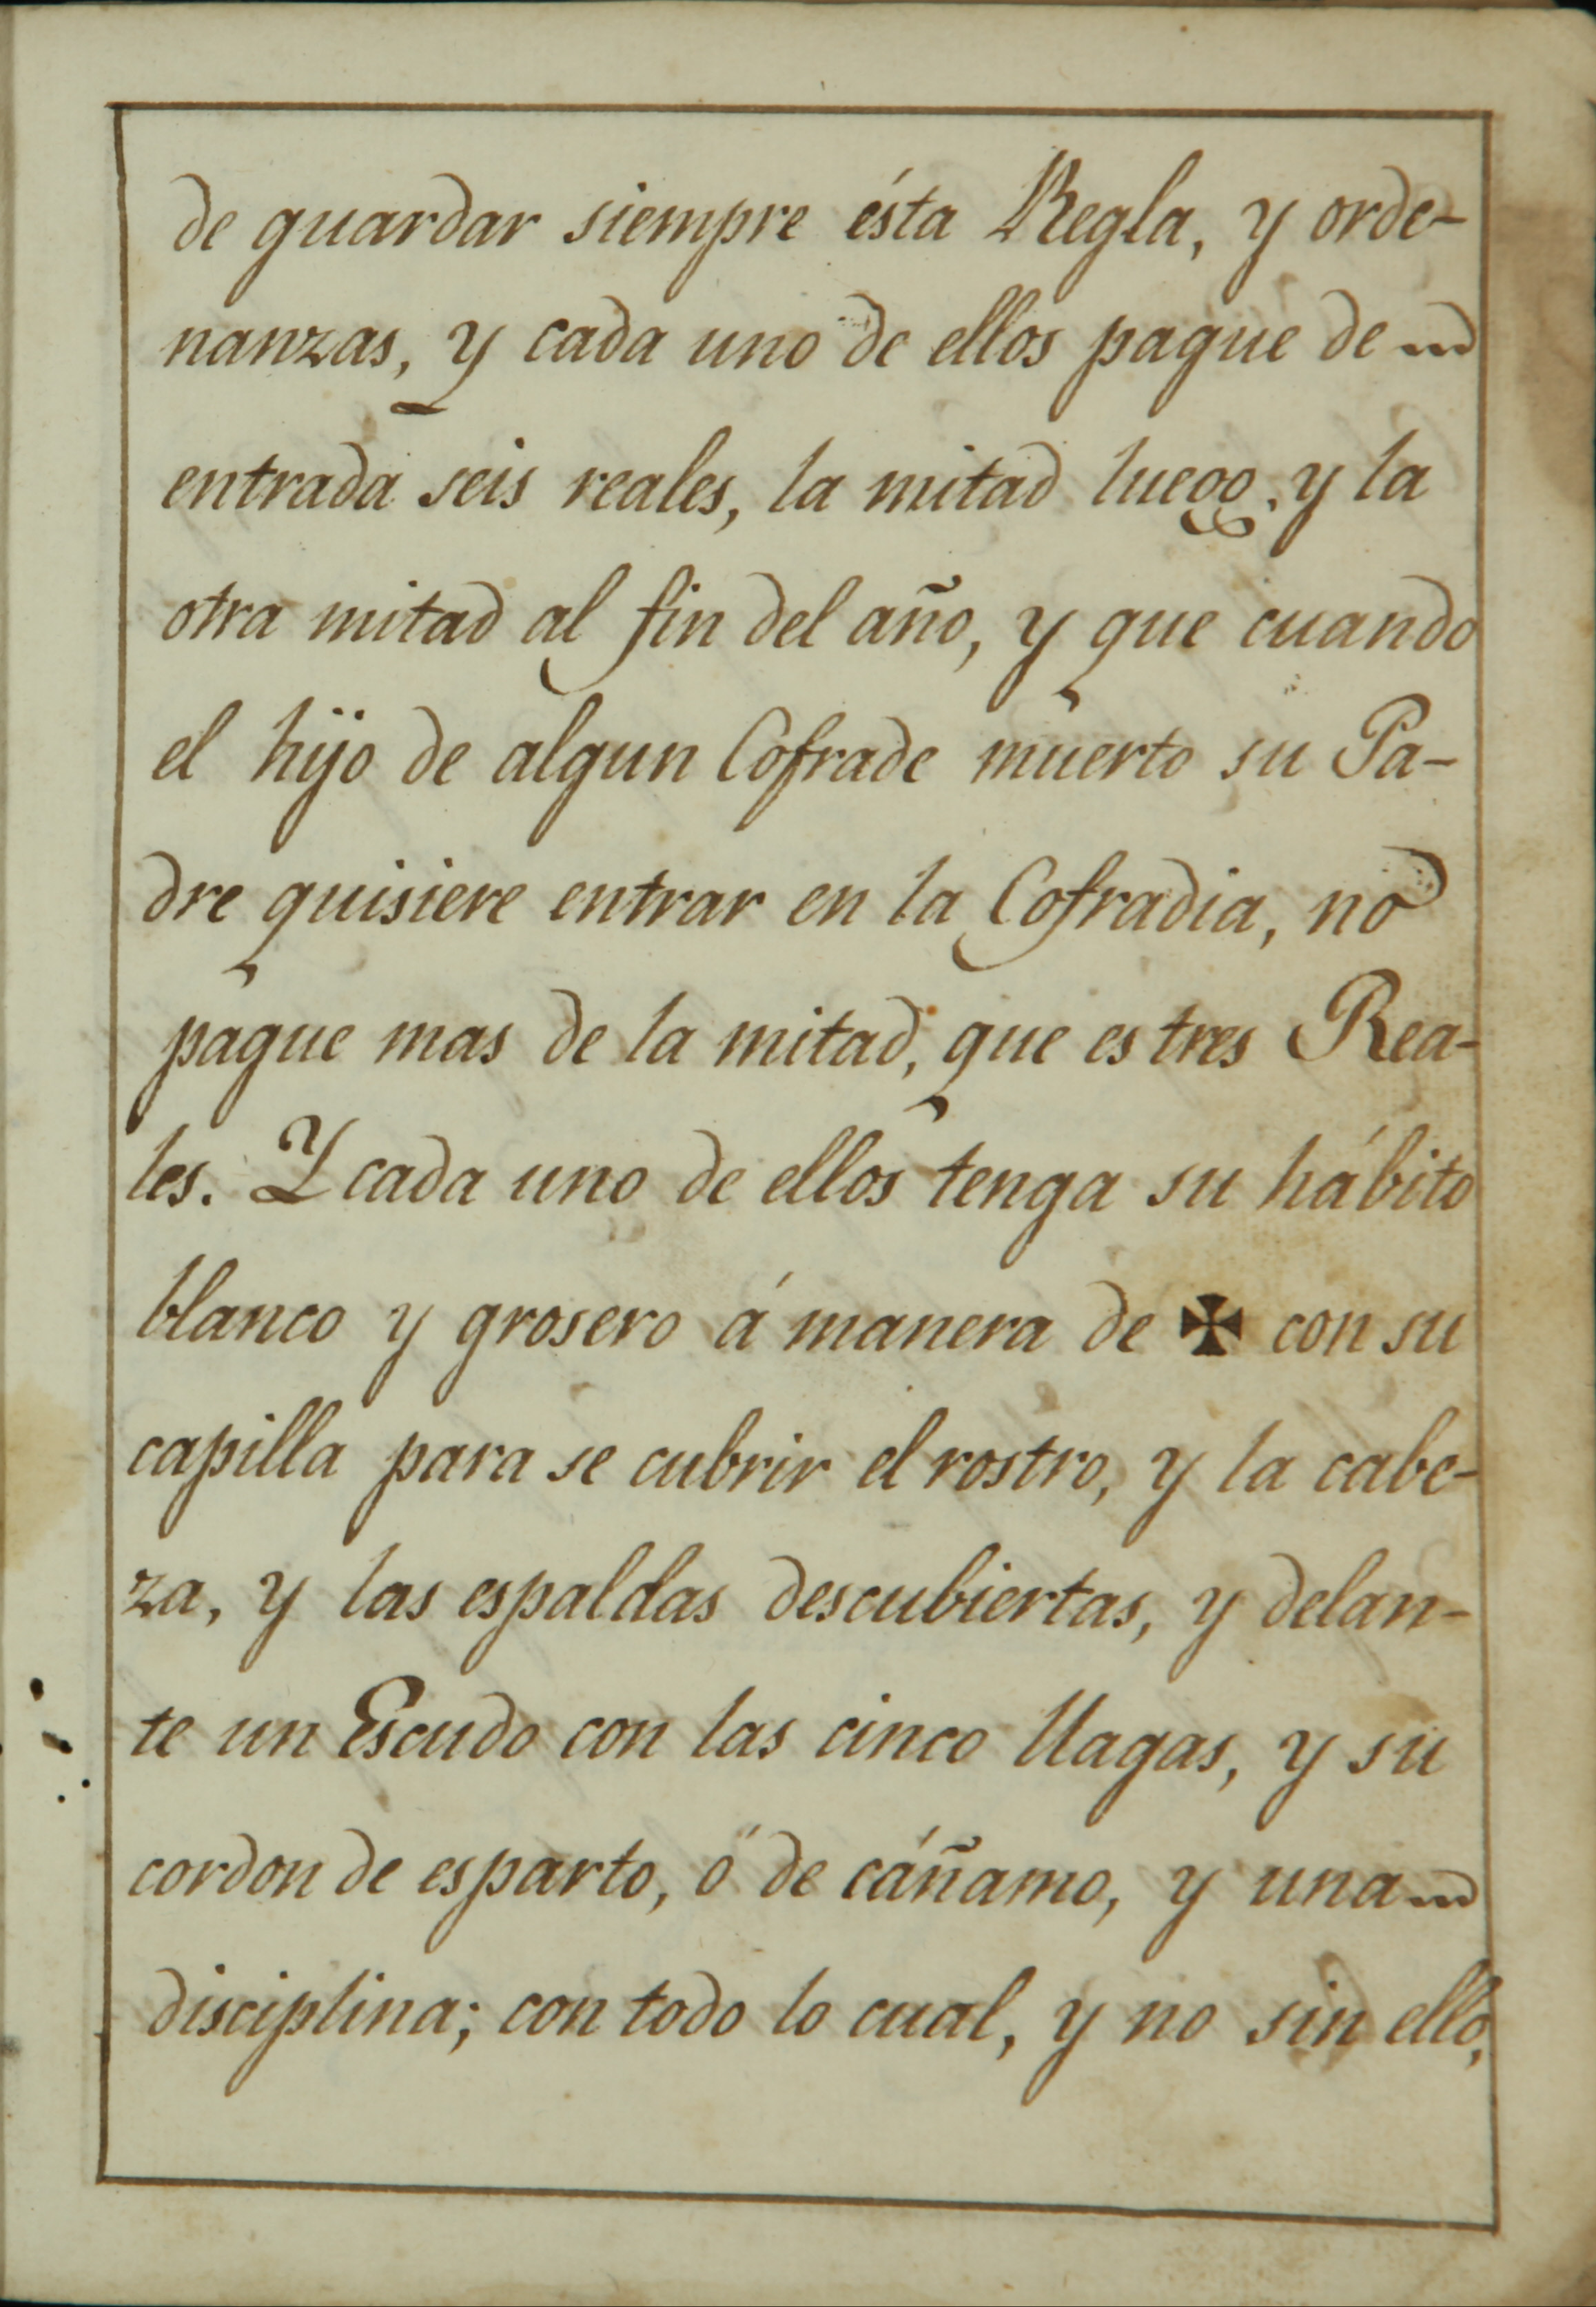 de guardar siempre ésta Regla, y orde-
nanzas, y cada uno de ellos pague de
entrada seis reales, la mitad luego, y la
otra mitad al fin del año, y que cuando
el hijo de algun Cofrade muerto su Pa-
dre quisiere entrar en la Cofradia, no
pague mas de la mitad, que es tres Rea-
les. Y cada uno de ellos tenga su hábito
blanco y grosero á manera de ✠ con su
capilla para se cubrir el rostro, y la cabe-
za, y las espaldas descubiertas, y delan-
te un Escudo con las cinco llagas, y su
cordon de esparto, ó de cáñamo, y una
disciplina; con todo lo cual, y no sin ello,